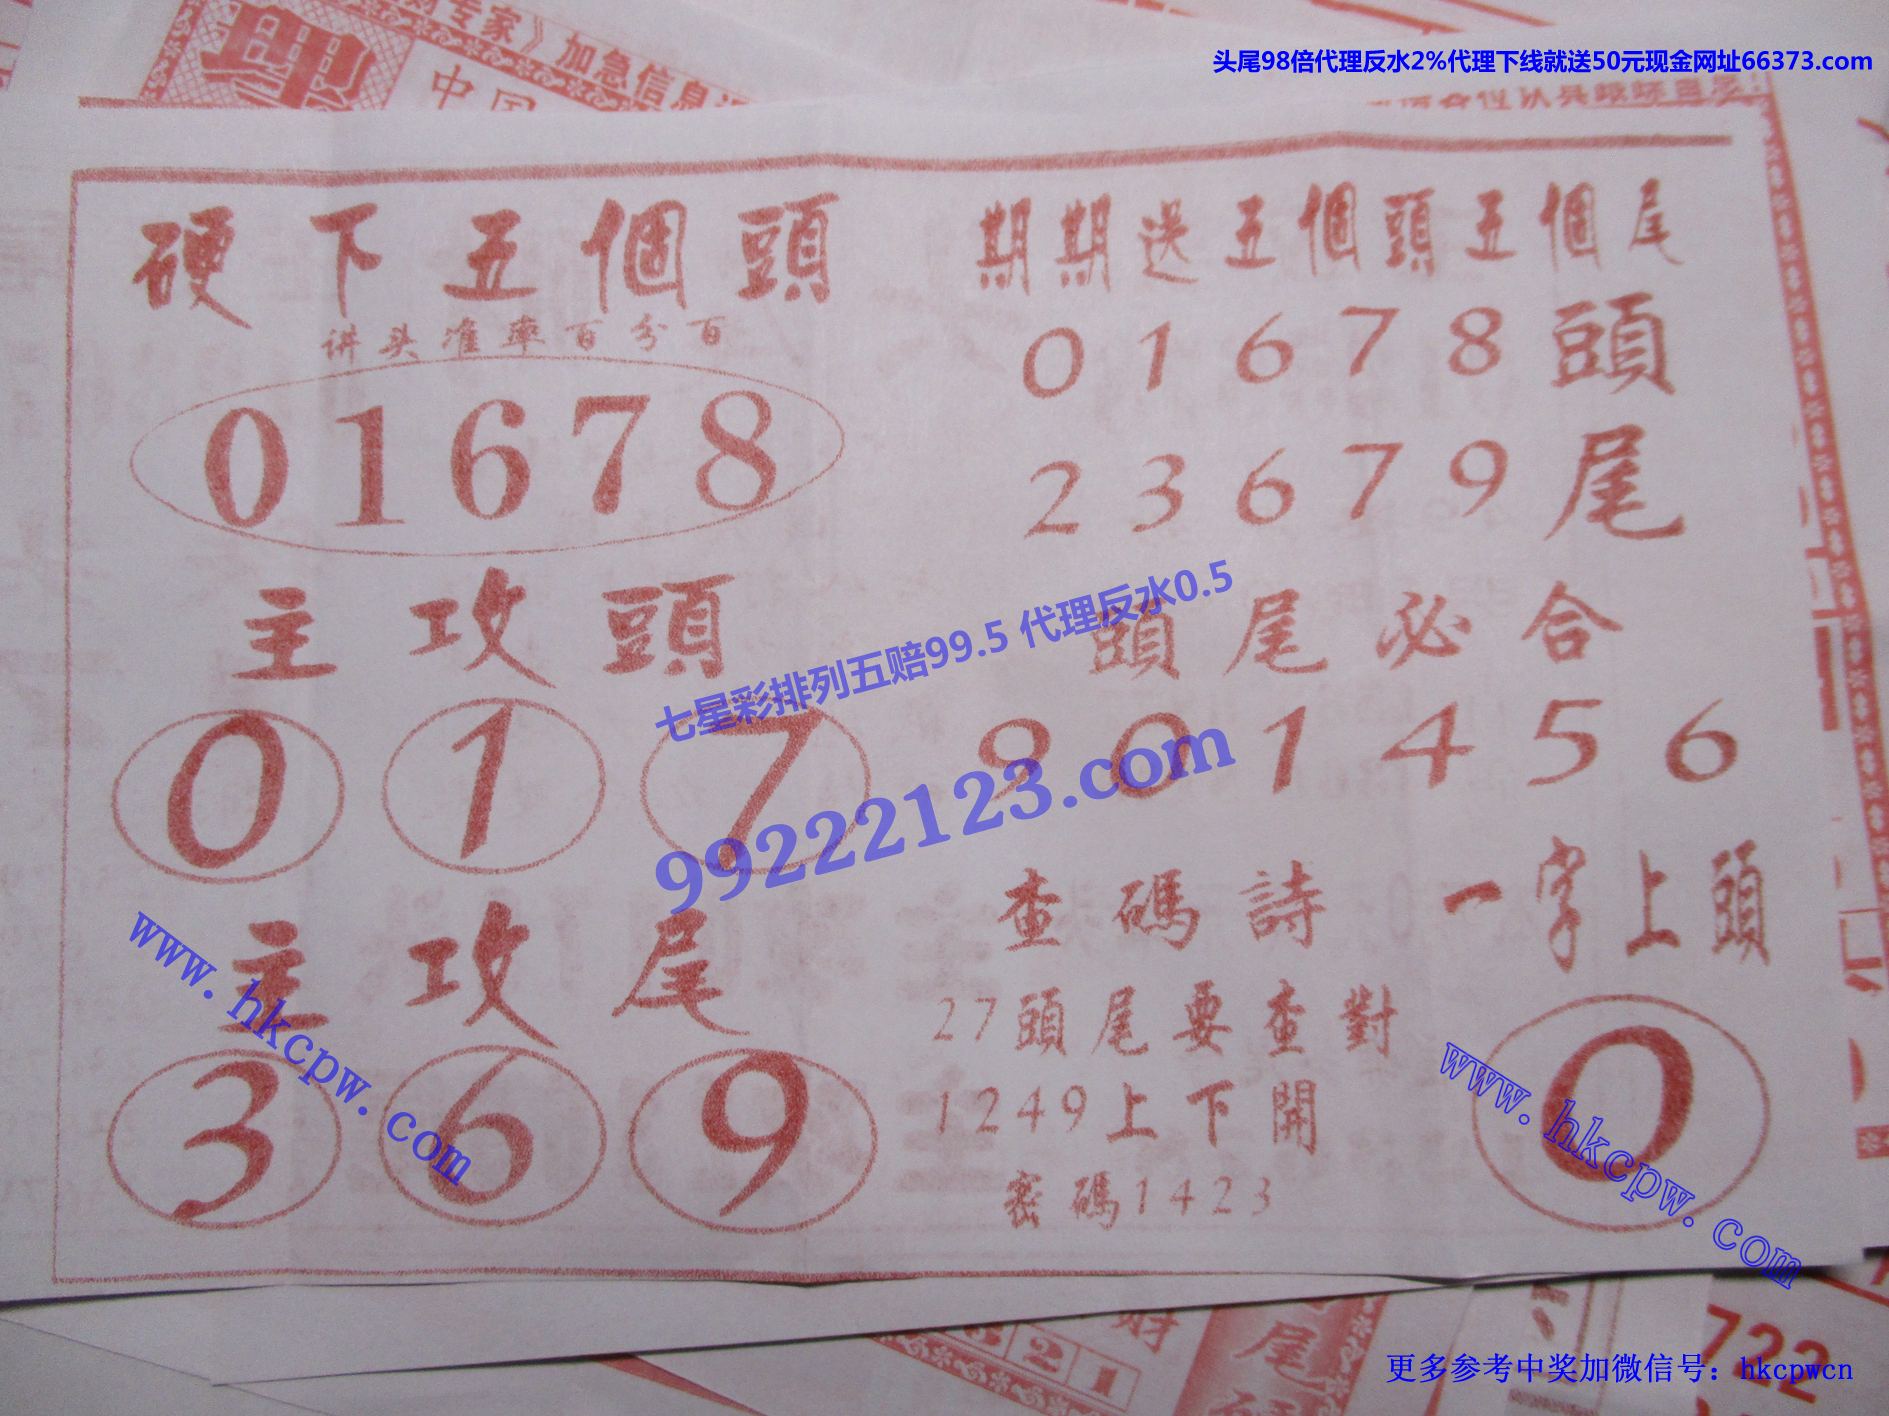 专家》加急信息
中国
头尾98倍代理反水2%代理下线就送50元现金网址66373.com
硬下五個頭
讲头准率百分百
01678
主攻頭
0 1 7
主攻尾
3 6 9
期期送五個頭五個尾
0 1 6 7 8 頭
2 3 6 7 9 尾
頭尾必合
9 0 1 4 5 6
查碼詩
27頭尾要查對
1249上下開
密碼1423
一字上頭
0
七星彩排列五赔99.5 代理反水0.5
99222123.com
www.hkcpw.com
www.hkcpw.com
财
尾
2 1
722
更多参考中奖加微信号：hkcpwcn